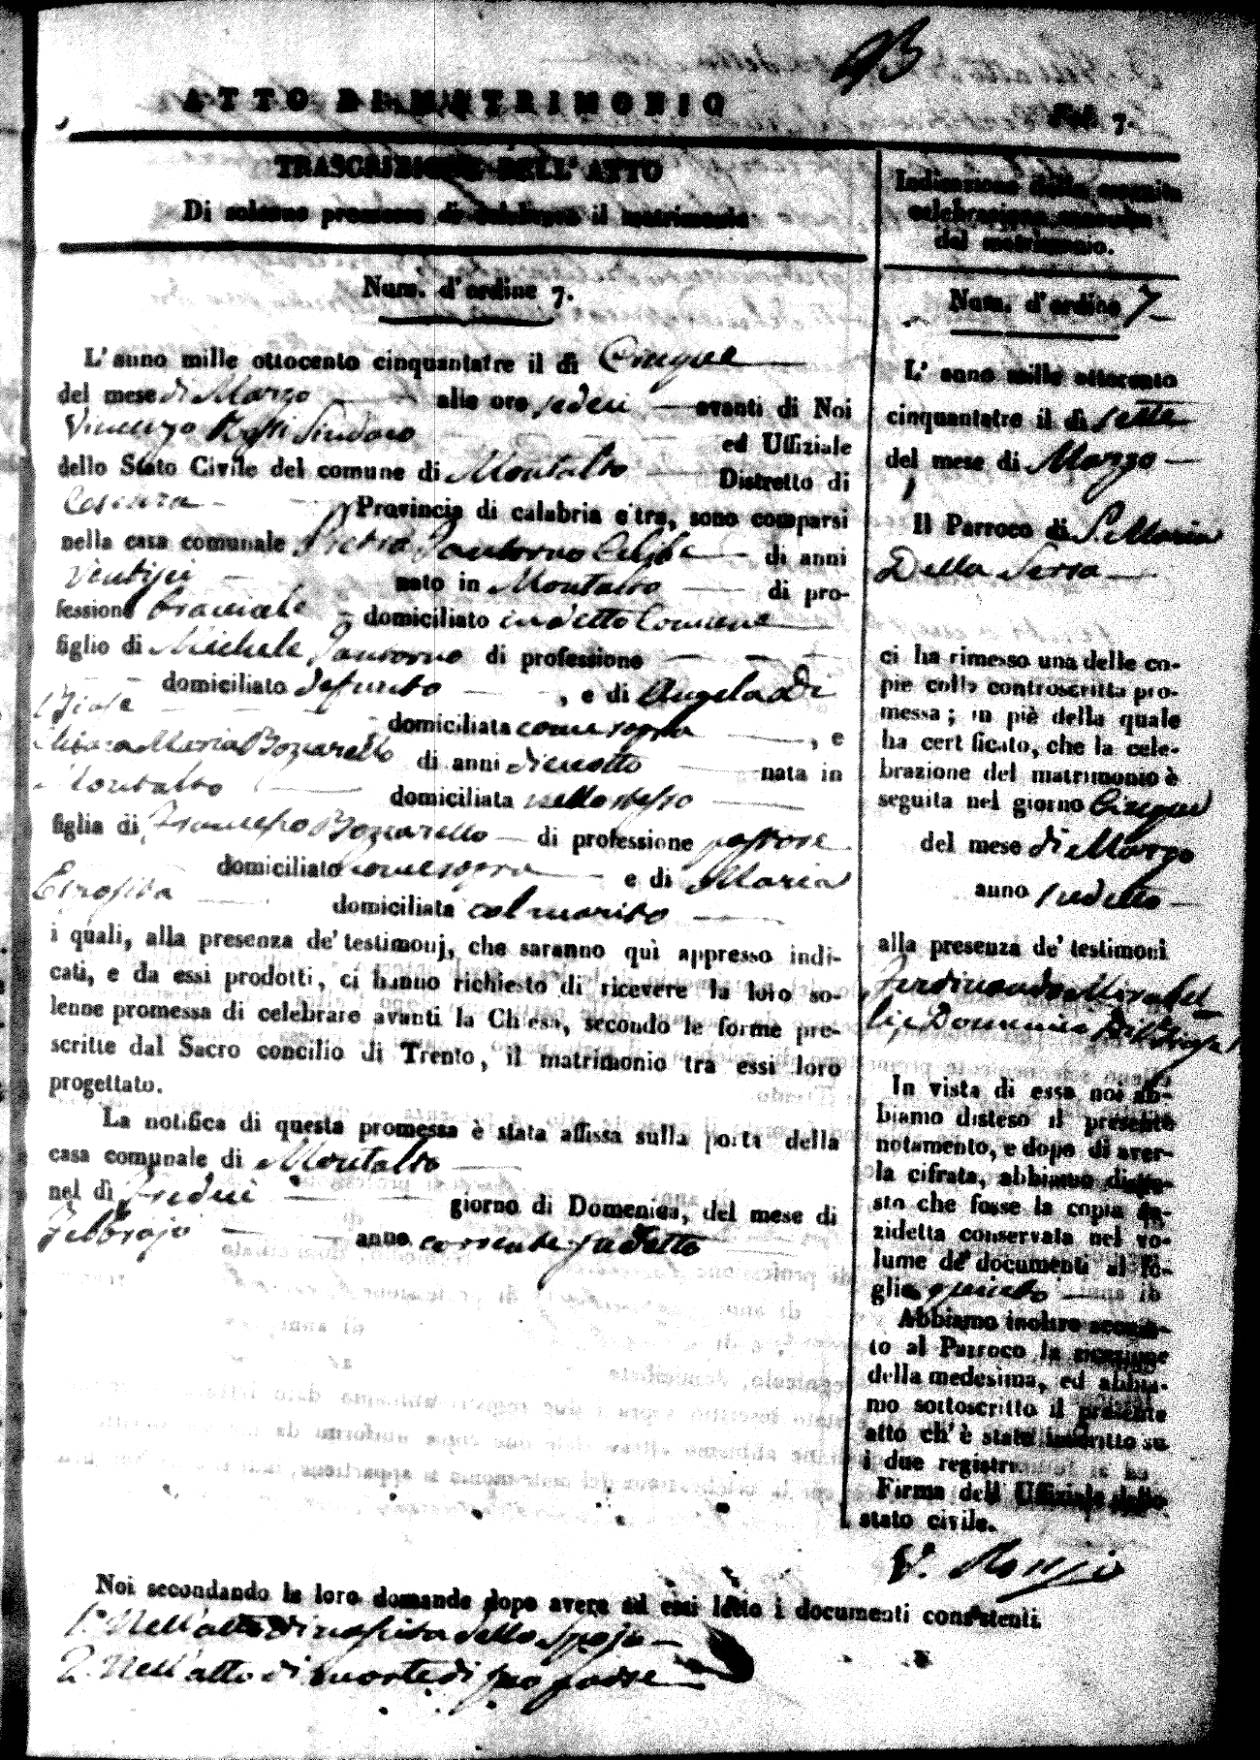 ATTO DI MATRIMONIO
7.
TRASCRIZIONE DELL' ATTO
Di solenne promessa di celebrare il matrimonio
Num. d'ordine 7.
L' anno mille ottocento cinquantatre il dì Cinque
del mese di Marzo alle ore sedeci avanti di Noi
Vincenzo Sindaco ed Uffiziale
dello Stato Civile del comune di Montalto Distretto di
Cosenza Provincia di calabria citra, sono comparsi
nella casa comunale Pietro Santorno Celibe di anni
Ventisei nato in Montalto di pro-
fessione bracciale domiciliato in detto Comune
figlio di Michele Santorno di professione
domiciliato defunto , e di Angela Di
Biase domiciliata come sopra , e
Chiara Maria Bozzarello di anni diciotto nata in
Montalto domiciliata nello stesso
figlia di Francesco Bozzarello di professione pastore
domiciliato come sopra e di Maria
Esposita domiciliata col marito
i quali, alla presenza de' testimonj, che saranno quì appresso indi-
cati, e da essi prodotti, ci hanno richiesto di ricevere la loro so-
lenne promessa di celebrare avanti la Chiesa, secondo le forme pre-
scritte dal Sacro concilio di Trento, il matrimonio tra essi loro
progettato.
La notifica di questa promessa è stata affissa sulla porta della
casa comunale di Montalto
nel dì Tredeci giorno di Domenica, del mese di
Febbrajo anno corrente sudetto
Indicazione della seguita
celebrazione canonica
del matrimonio.
Num. d'ordine 7
L' anno mille ottocento
cinquantatre il dì sette
del mese di Marzo
Il Parroco di S. Maria
Della Serra
ci ha rimesso una delle co-
pie colla controscritta pro-
messa; in piè della quale
ha certificato, che la cele-
brazione del matrimonio è
seguita nel giorno Cinque
del mese di Marzo
anno sudetto
alla presenza de' testimoni
Ferdinando Mirabel
li, e Domenico
In vista di essa noi ab-
biamo disteso il presente
notamento, e dopo di aver-
la cifrata, abbiamo dispo-
sto che fosse la copia an-
zidetta conservata nel vo-
lume de' documenti al fo-
glio quinto
Abbiamo inoltre accusa-
to al Parroco la ricezione
della medesima, ed abbia-
mo sottoscritto il presente
atto ch' è stato inscritto su
i due registri
Firma dell Uffiziale dello
stato civile.
Noi secondando le loro domande dopo avere ad essi letto i documenti consistenti
1.° Nell'atto di nascita dello sposo
2.° Nell'atto di morte di suo padre